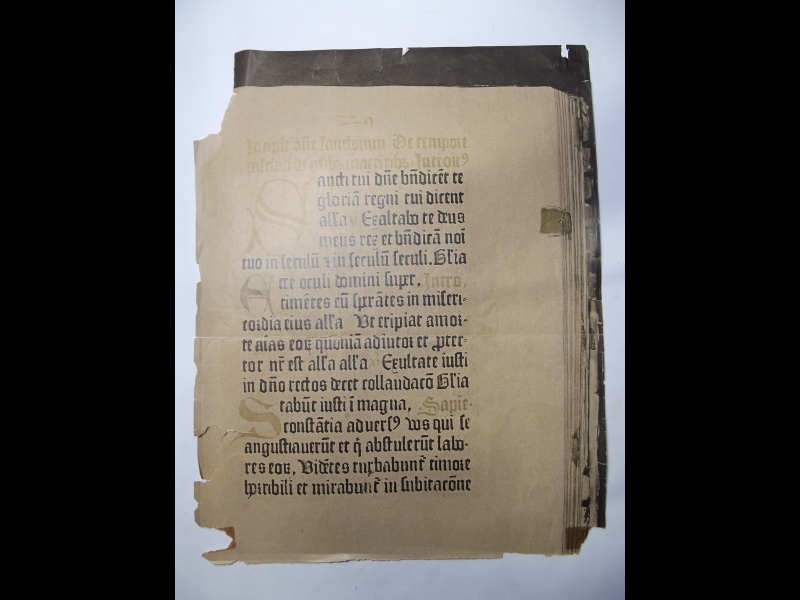 Incipit cōe sanctorum De tempore
paschali de pluribꝫ martiribꝫ. Introitꝰ
Sancti tui dn̄e bn̄dicēt te
gloriā regni tui dicent
all'a Exaltabo te deus
meus rex et bn̄dicā noī
tuo in seculū ⁊ in seculū seculi. Gl'ia
Ecce oculi domini super, Intro,
timētes eū sperātes in miseri-
cordia eius all'a Ut eripiat a mor-
te aīas eoꝝ quōniā adiutor et ꝓtec-
tor nr̄ est all'a all'a Exultate iusti
in dn̄o rectos decet collaudacō Gl'ia
Stabūt iusti ī magna, Sapie.
constātia aduersꝰ eos qui se
angustiauerūt et q̇ abstulerūt labo-
res eoꝝ, Vidētes turbabunt᷑ timore
horribili et mirabunt᷑ in subitacōne